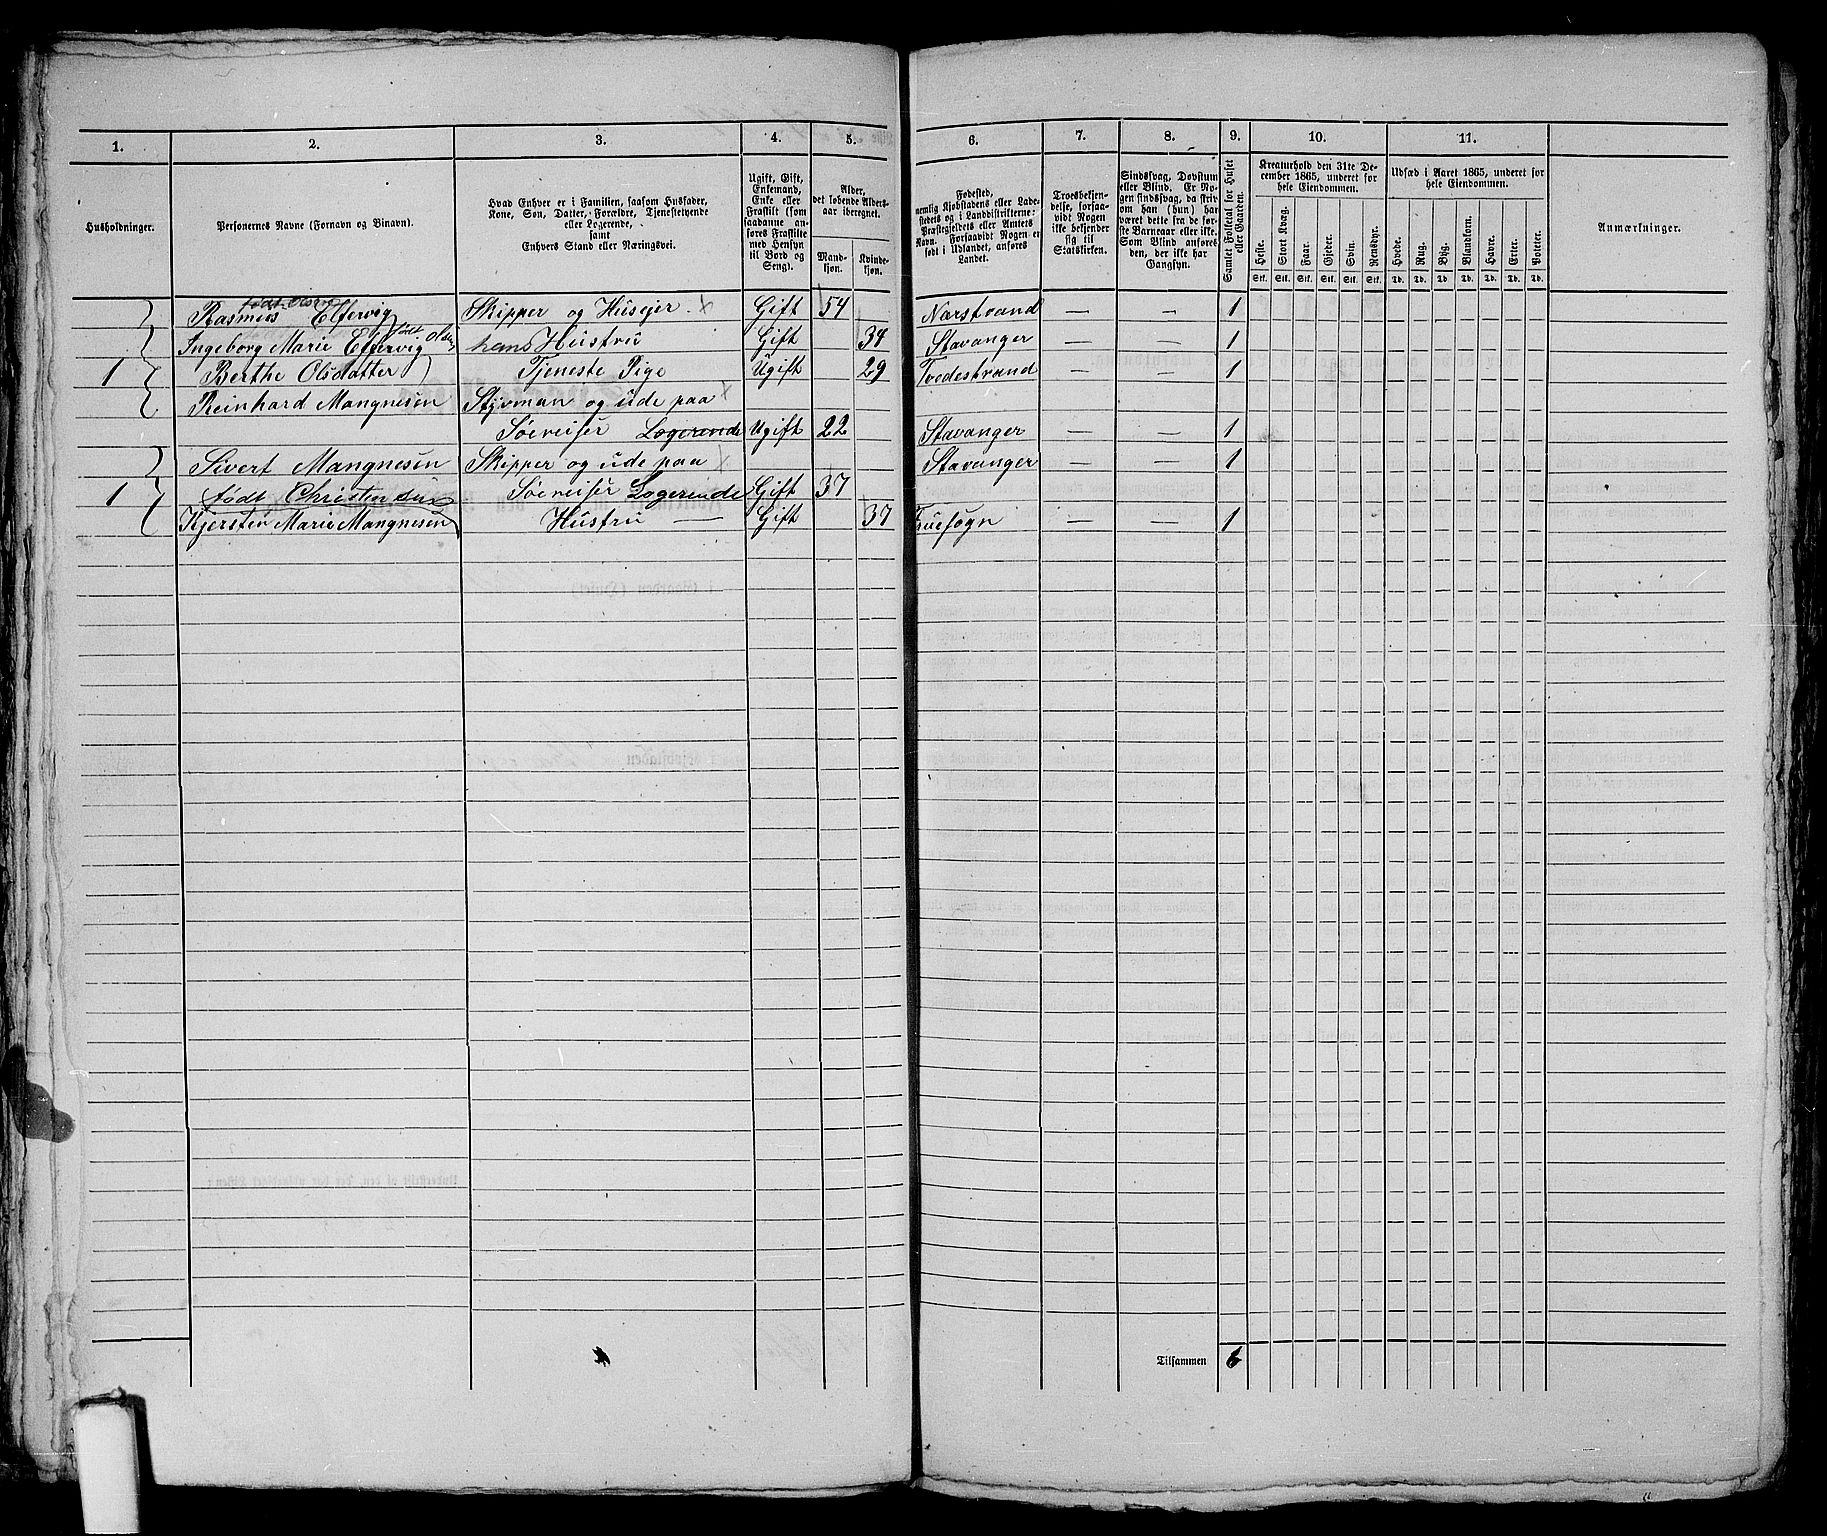 1. 2. 3. 4. 5. 6. 7. 8. 9. 10. 11.
Husholdninger.
Personernes Navne (Fornavn og Binavn).
Hvad Enhver er i Familien, saasom Husfader,
Kone, Søn, Datter, Forældre, Tjenestetyende
eller Logerende,
samt
Enhvers Stand eller Næringsvei.
Ugift, Gift,
Enkemand,
Enke eller
Fraskilt (som
saadanne an-
føres Fraskilte
med Hensyn
til Bord og
Seng).
Alder,
det løbende Alders-
aar iberegnet.
Mand-
kjøn.
Kvinde-
kjøn.
Fødested,
nemlig Kjøbstadens eller Lade-
stedets og i Landdistrikterne:
Præstegjeldets eller Amtets
Navn. Forsaavidt Nogen er
født i Udlandet, anføres
Landet.
Troesbekjen-
delse, forsaa-
vidt Nogen
ikke bekjender
sig til
Statskirken.
Sindssvag, Døvstum
eller Blind. Er No-
gen sindssvag, da skriv
om han (hun) har
været dette fra de før-
ste Barneaar eller ikke.
Som Blind anføres
den, der ikke har
Gangsyn.
Samlet Folketal for Huset
eller Gaarden.
Kreaturhold den 31te De-
cember 1865, underet for
hele Eiendommen.
Heste. Stort Kvæg. Faar. Gjeder. Svin. Rensdyr.
Stk. Stk. Stk. Stk. Stk. Stk.
Udsæd i Aaret 1865, underet for
hele Eiendommen.
Hvede. Rug. Byg. Blandkorn. Havre. Erter. Poteter.
Td. Td. Td. Td. Td. Td. Td.
Anmærkninger.
født Olsen
Rasmus Elfervig Skipper og Huseier x Gift 54 Narstrand — — 1
Ingeborg Marie Elfervig født Olsen hans Hustru Gift 34 Stavanger — — 1
1 Berthe Olsdatter Tjeneste Pige Ugift 29 Tvedestrand — — 1
Reinhard Mangnesen Styrman og ude paa x
Søereiser Logerende Ugift 22 Stavanger — — 1
Sivert Mangnesen Skipper og ude paa x Stavanger — — 1
1 født Christensen Søereiser Logerende Gift 37
Kjersten Marie Mangnesen Hustru — Gift 37 — — 1
Tilsammen 6